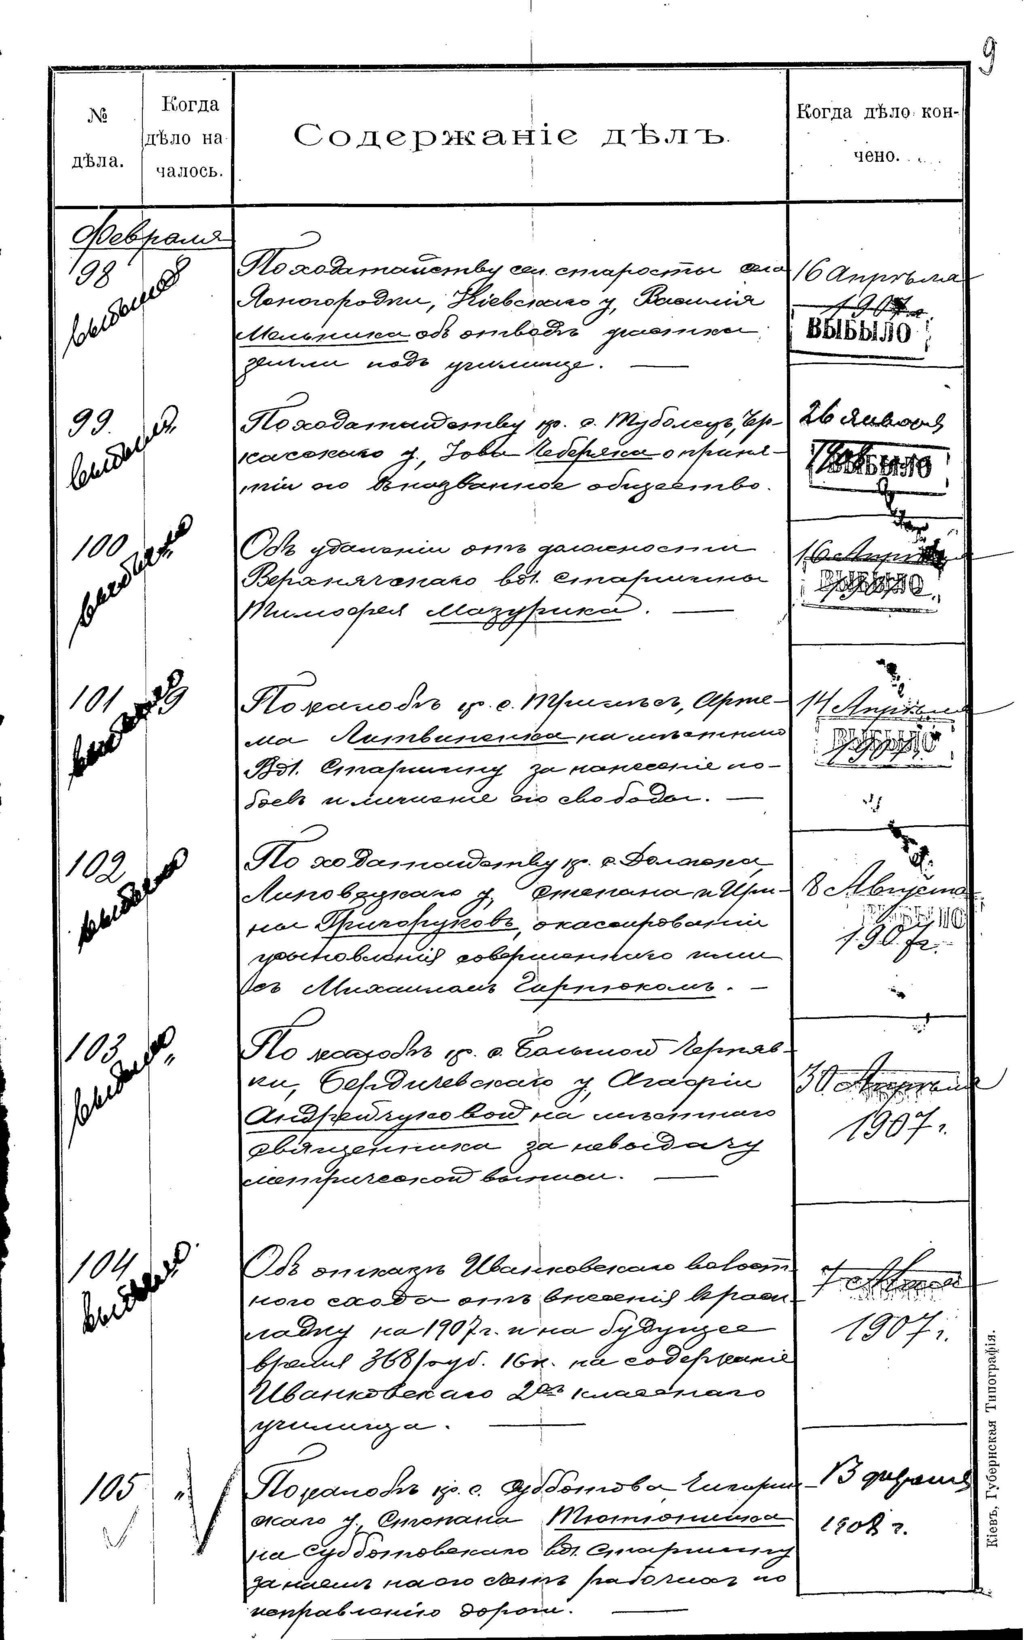 9
№ дѣла.
Когда дѣло началось.
Содержаніе дѣлъ.
Когда дѣло кончено.
Февраля
98
выбыло
По ходатайству сел. старосты села
Ясногородки, Кіевскаго у, Василія
Мельника объ отводѣ участка
земли подъ училище. —
16 Апрѣля
1907 г.
ВЫБЫЛО
99.
выбыло
По ходатайству кр. с. Тубольцъ, Чер-
касскаго у., Іова Чеберяка о приня-
тіи его въ названное общество.
26 Января
1908
ВЫБЫЛО
100
выбыло
Объ удаленіи отъ должности
Верхнячскаго вол. старшины
Тимофея Мазурика. —
16 Апрѣля
1907 г.
ВЫБЫЛО
101
9
выбыло
По жалобѣ кр. с. Арте-
ма Литвиненка на мѣстнаго
Вол. Старшину за нанесеніе по-
боевъ и лишеніе его свободы. —
14 Апрѣля
1907 г.
ВЫБЫЛО
102
выбыло
По ходатайству кр. с. Должка,
Липовецкаго у, Степана и Ири-
ны Григоруковъ, о кассированіи
усыновленія совершеннаго ими
съ Михаиломъ —
8 Августа
1907 г.
ВЫБЫЛО
103
выбыло
"
По жалобѣ кр. с. Большой Черняв-
ки, Бердичевскаго у, Агафіи
Андрейчуковой на мѣстнаго
священника за невыдачу
метрической выписи. —
30 Апрѣля
1907 г.
104
выбыло
Объ отказѣ Иванковскаго волост-
ного схода отъ внесенія въ раск-
ладку на 1907 г. и на будущее
время 368 руб. 16 к. на содержаніе
Иванковскаго 2хъ класснаго
училища. —
7
1907 г.
105
"
По жалобѣ кр. с. Субботова, Чигирин-
скаго у, Степана Тютюнника
на Субботовскаго вол. старшину
за наемъ на его счетъ рабочихъ по
исправленію дороги. —
13 февраля
1908 г.
Кіевъ, Губернская Типографія.